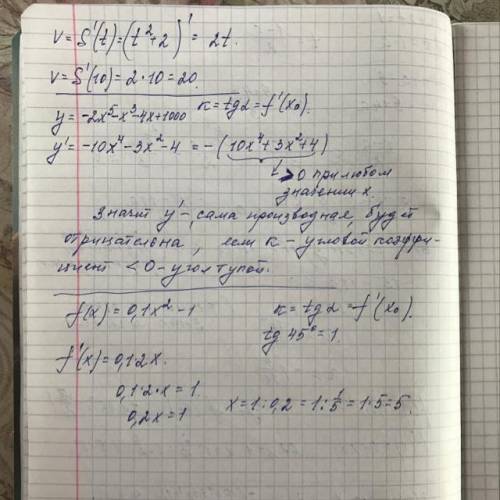 v=S'(t)=(t²+2)'= 2t.
v=S'(10)=2·10=20.
y=-2x⁵-x³-4x+1000 к=tgα=f'(x₀).
y'=-10x⁴-3x²-4 =-(10x⁴+3x²+4)
>0 при любом
значении x.
Значит y'- сама производная, будет
отрицательна, если к-угловой коэффи-
циент <0-угол тупой.
f(x)=0,1x²-1 к=tgα=f'(x₀).
tg 45°=1.
f'(x)=0,12x.
0,1·2·x=1.
0,2x=1 x=1:0,2=1:1/5=1·5=5.